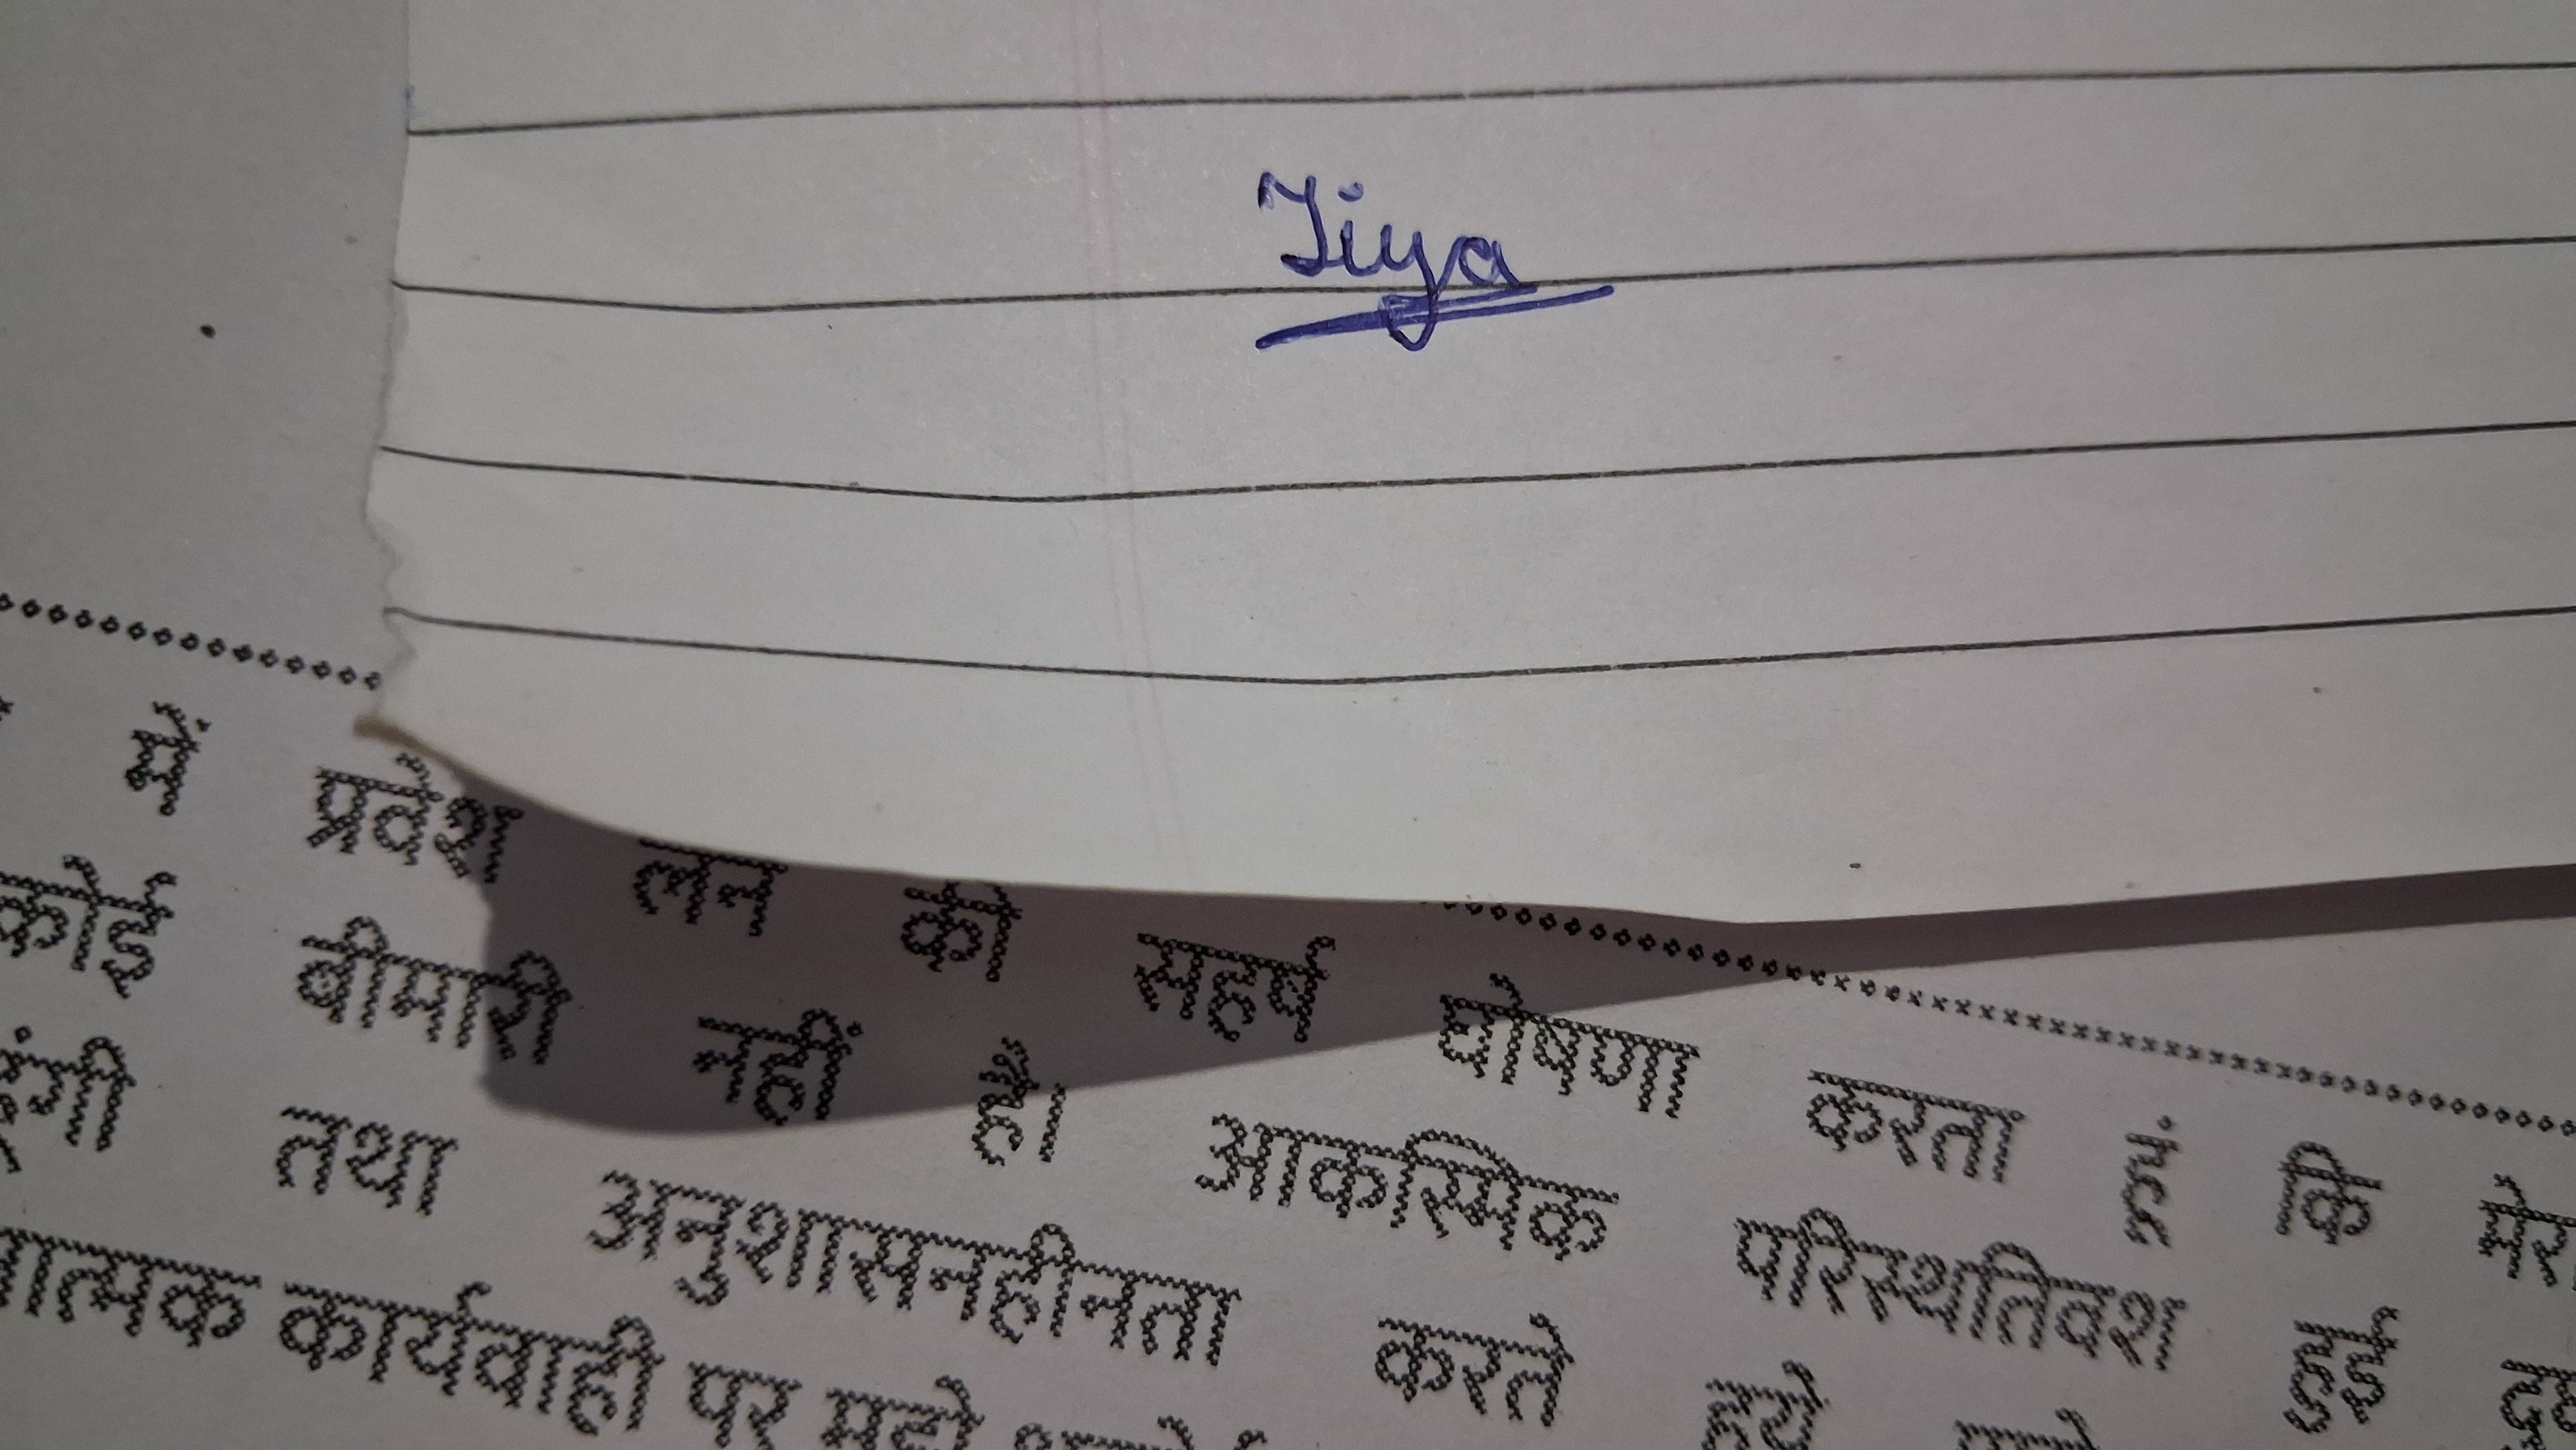 Jiya
में प्रवेश लेने की सहर्ष घोषणा करता हूं कि
कोई बीमारी नहीं है। आकस्मिक परिस्थतिवश हुई
तथा अनुशासनहीनता करते हुये
कार्यवाही पर मुझे